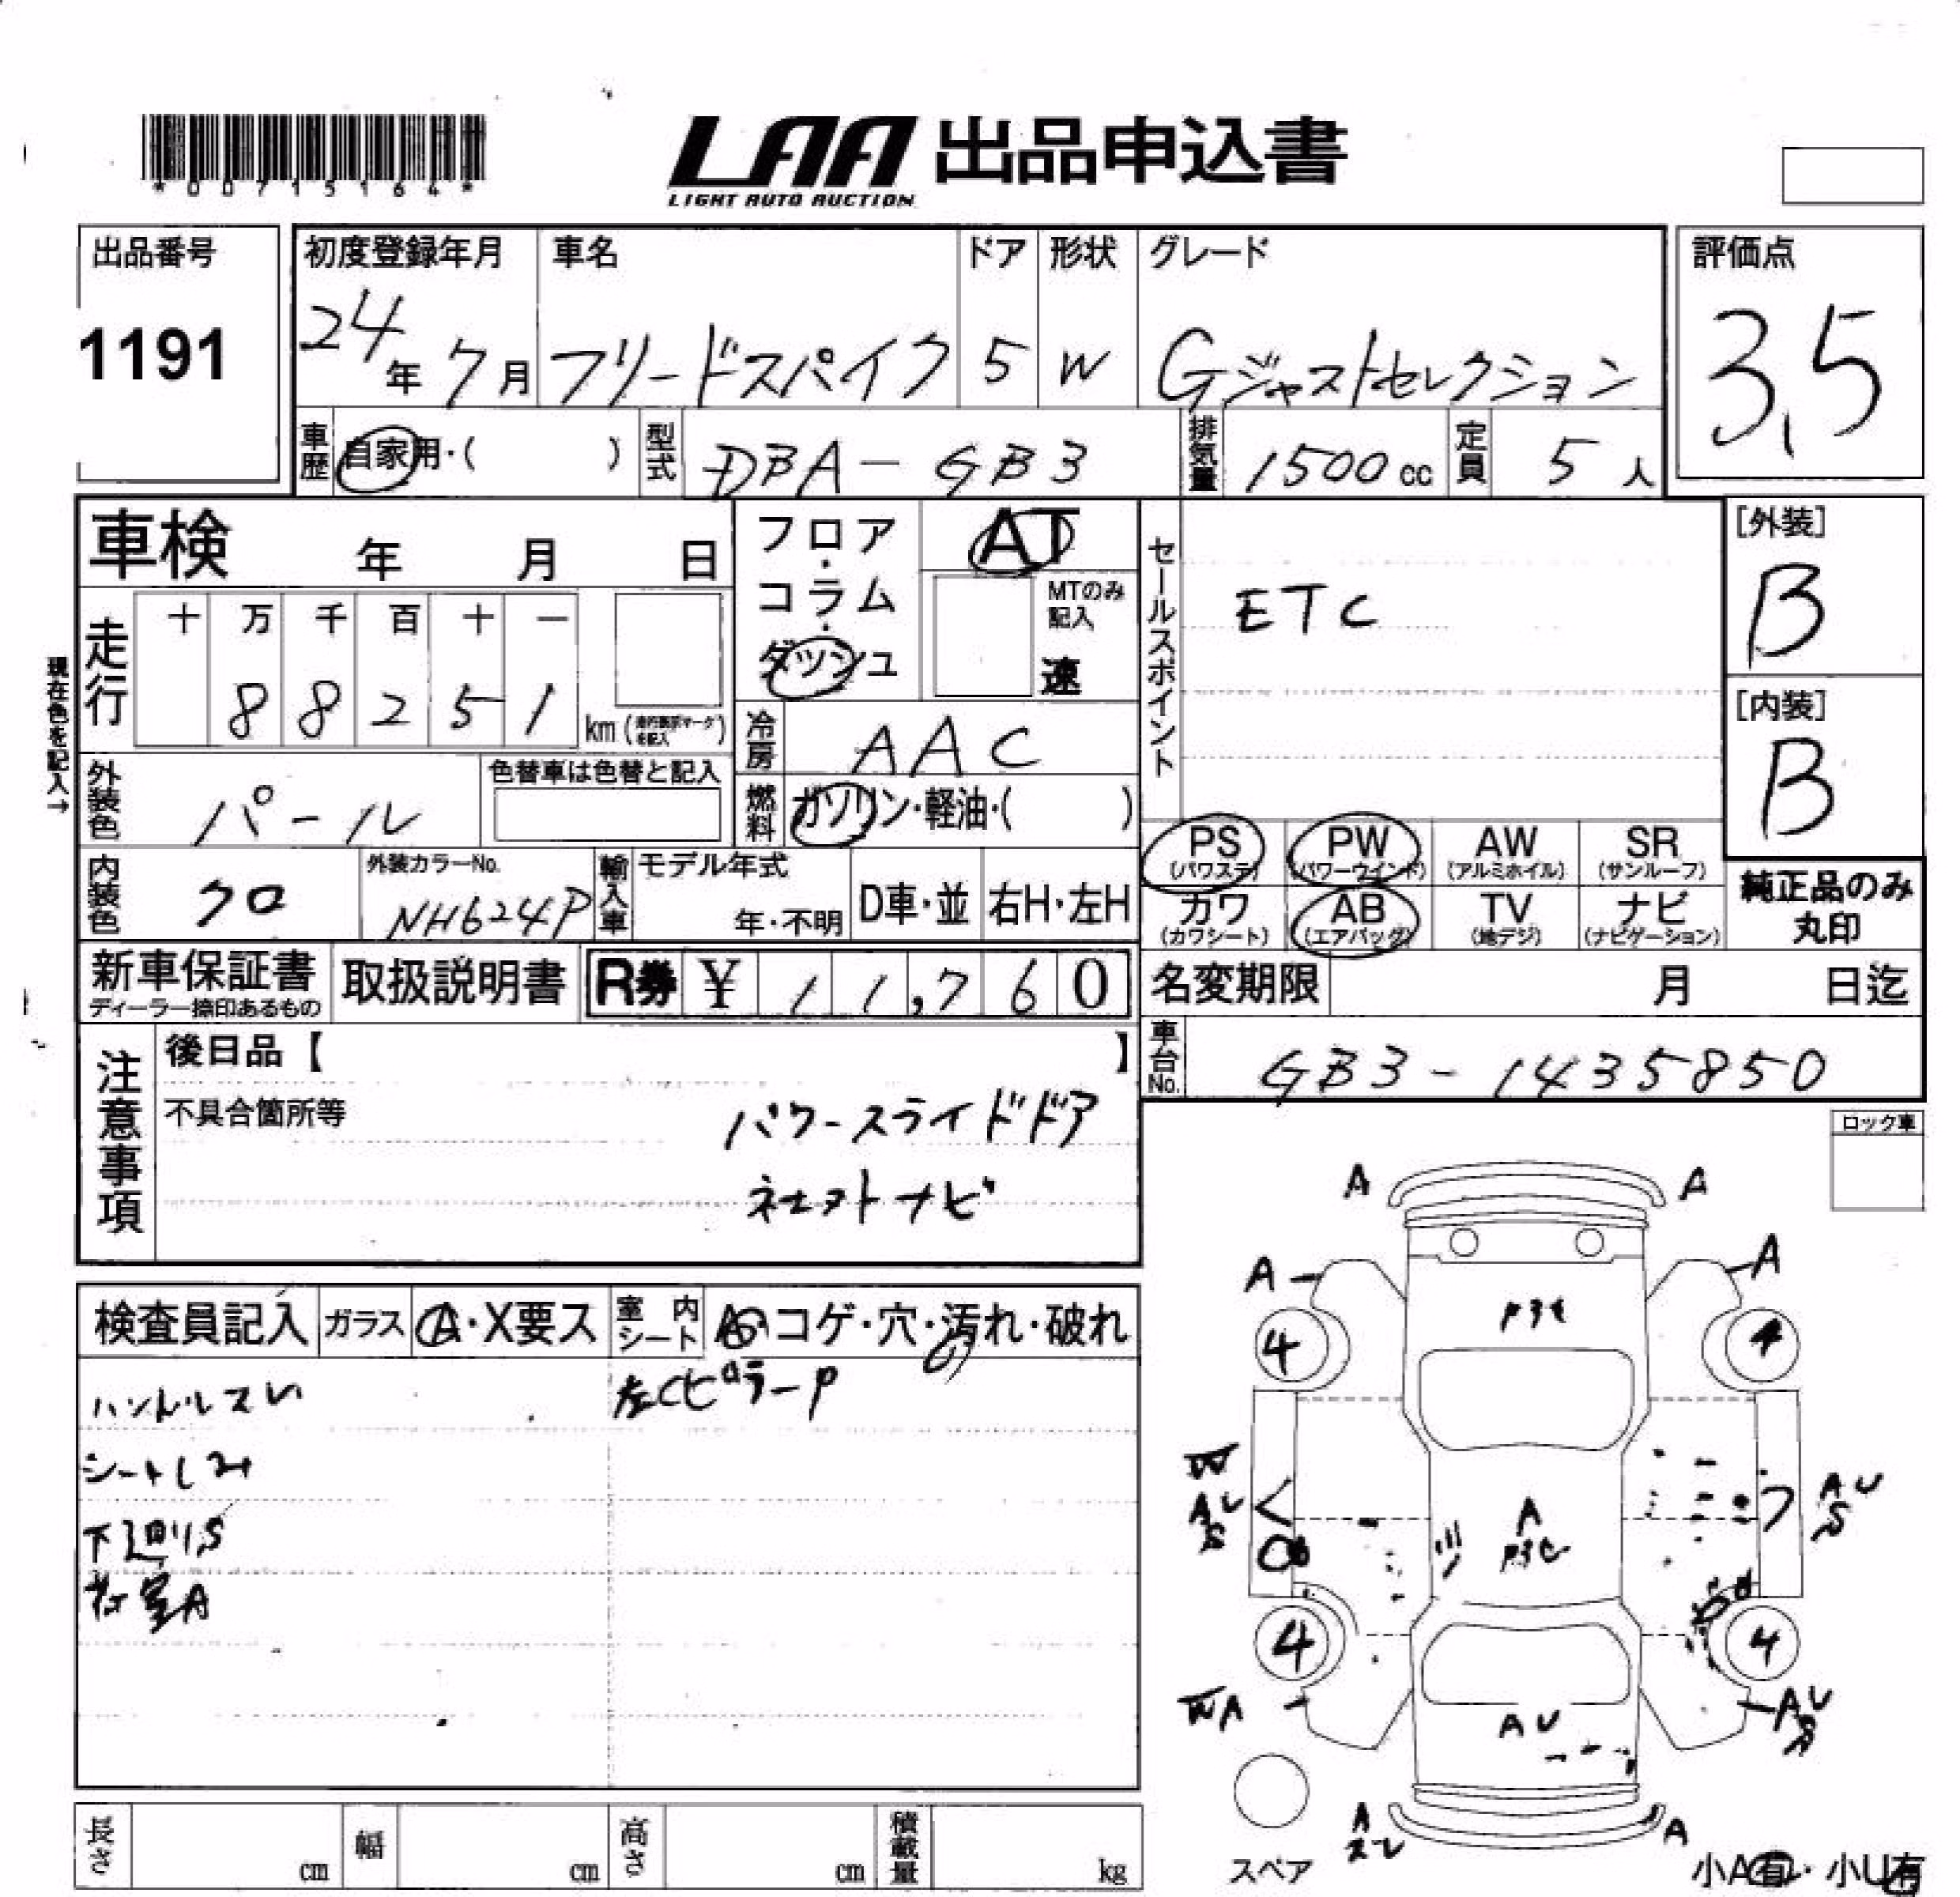 *00715164*
LAA 出品申込書
LIGHT AUTO AUCTION
出品番号
1191
初度登録年月
24年 7月
車名
フリードスパイク
ドア
5
形状
W
グレード
Gジャストセレクション
評価点
3.5
車歴
自家用・( )
型式
DBA-GB3
排気量
1500cc
定員
5人
車検 年 月 日
フロア・コラム・ダッシュ
AT
MTのみ記入
速
セールスポイント
ETC
[外装]
B
[内装]
B
現在色を記入→
走行
十 万 千 百 十 一
8 8 2 5 1
km (走行表示マークを記入)
冷房
AAC
外装色
パール
色替車は色替と記入
燃料
ガソリン・軽油・( )
内装色
クロ
外装カラーNo.
NH624P
輸入車
モデル年式
年・不明
D車・並
右H・左H
PS (パワステ)
PW (パワーウインド)
AW (アルミホイル)
SR (サンルーフ)
カワ (カワシート)
AB (エアバッグ)
TV (地デジ)
ナビ (ナビゲーション)
純正品のみ丸印
新車保証書
ディーラー捺印あるもの
取扱説明書
R券 ¥ 11,760
名変期限 月 日迄
車台No.
GB3-1435850
注意事項
後日品【 】
不具合箇所等
パワースライドドア
ナビ
ロック車
検査員記入
ガラス
A・X要ス
室内シート
コゲ・穴・汚れ・破れ
ハンドルスレ
左Cピラーp
シートしみ
下廻りS
荷室A
A A
A A
4 4
W
A U
S
A
A U
S
4 4
W A
A U
A U
S
A
スレ
A
スペア
小A有・小U有
長さ cm
幅 cm
高さ cm
積載量 kg